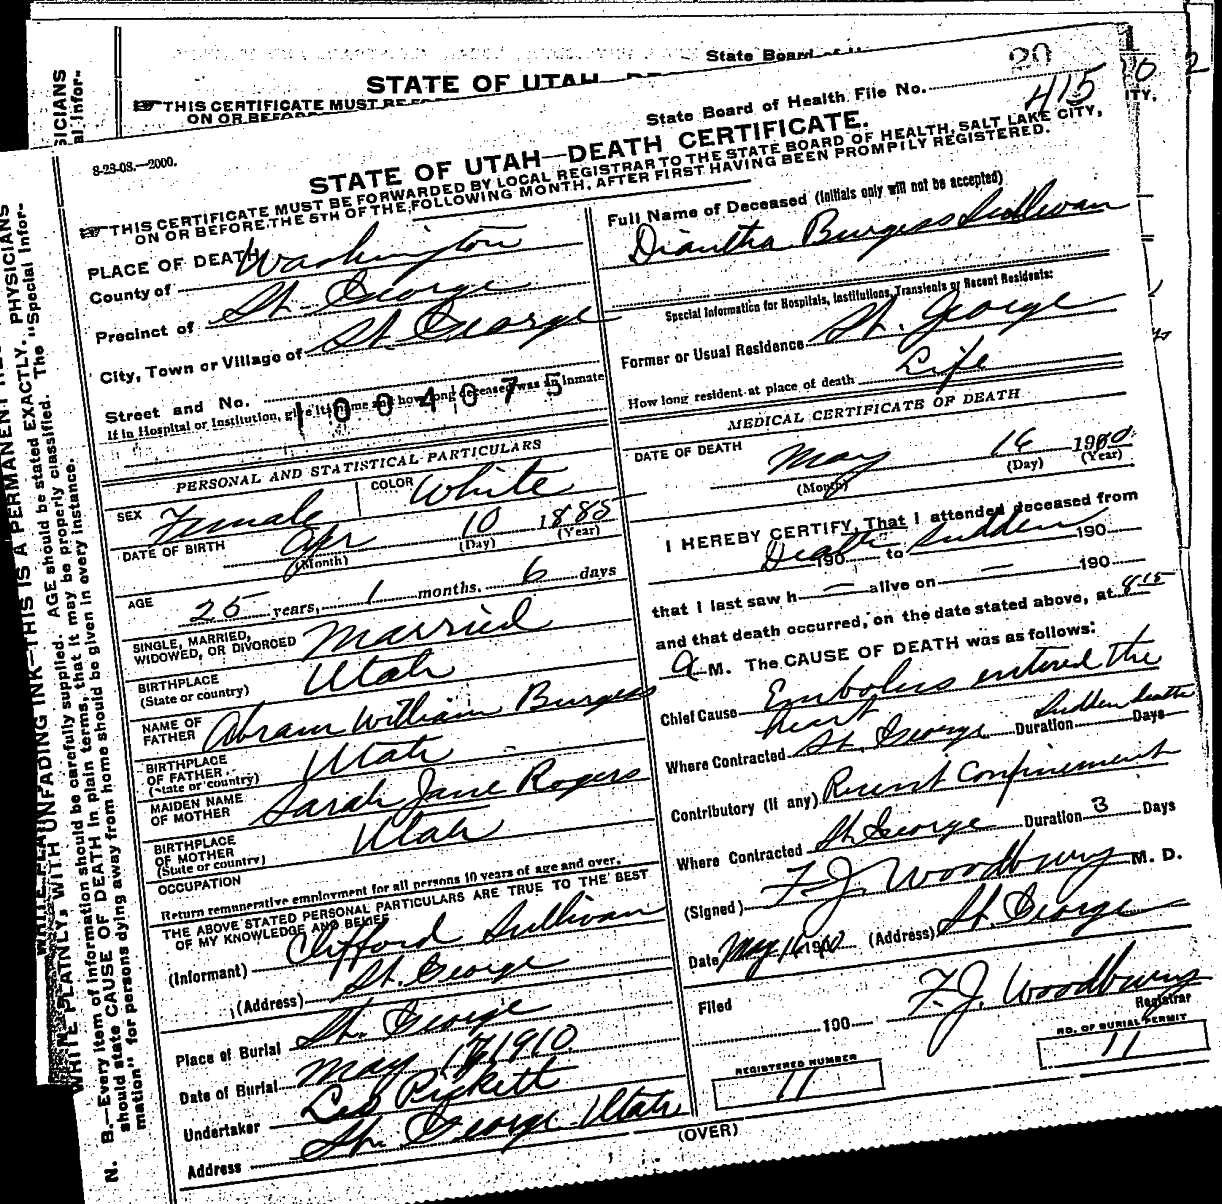 State Board of
STATE OF UTAH
THIS CERTIFICATE MUST BE
ON OR BEFORE
ITY.
20
State Board of Health File No. 415
8-28-08.—2000.
STATE OF UTAH—DEATH CERTIFICATE.
THIS CERTIFICATE MUST BE FORWARDED BY LOCAL REGISTRAR TO THE STATE BOARD OF HEALTH, SALT LAKE CITY,
ON OR BEFORE THE 5TH OF THE FOLLOWING MONTH, AFTER FIRST HAVING BEEN PROMPILY REGISTERED.
PLACE OF DEATH
County of Washington
Precinct of St. George
City, Town or Village of St. George
Street and No.
If in Hospital or Institution, give its name and how long deceased was an inmate
1004075
PERSONAL AND STATISTICAL PARTICULARS
SEX Female COLOR White
DATE OF BIRTH Apr 10 1885
(Month) (Day) (Year)
AGE 25 years, 1 months, 6 days
SINGLE, MARRIED,
WIDOWED, OR DIVORCED Married
BIRTHPLACE
(State or country) Utah
NAME OF
FATHER Abram William Burgess
BIRTHPLACE
OF FATHER
(State or country) Utah
MAIDEN NAME
OF MOTHER Sarah Jane Rogers
BIRTHPLACE
OF MOTHER
(State or country) Utah
OCCUPATION
Return remunerative employment for all persons 10 years of age and over.
THE ABOVE STATED PERSONAL PARTICULARS ARE TRUE TO THE BEST
OF MY KNOWLEDGE AND BELIEF
(Informant) Clifford Sullivan
(Address) St. George
Place of Burial St. George
Date of Burial May 17 1910
Undertaker Leo Pickett
Address St. George Utah
Full Name of Deceased (Initials only will not be accepted)
Diantha Burgess Sullivan
Special Information for Hospitals, Institutions, Transients or Recent Residents:
Former or Usual Residence St. George
How long resident at place of death Life
MEDICAL CERTIFICATE OF DEATH
DATE OF DEATH May 16 1910
(Month) (Day) (Year)
I HEREBY CERTIFY, That I attended deceased from
Death 190 to sudden 190
that I last saw h — alive on — 190
and that death occurred, on the date stated above, at 8 15
A M. The CAUSE OF DEATH was as follows:
Chief Cause Embolus entered the
heart Sudden death
Where Contracted St. George Duration Days
Contributory (if any) Recent Confinement
Where Contracted St George Duration 3 Days
(Signed) F. J. Woodbury M. D.
Date May 16 1910 (Address) St. George
Filed F. J. Woodbury
190 Registrar
REGISTERED NUMBER
11
NO. OF BURIAL PERMIT
11
(OVER)
WRITE PLAINLY, WITH UNFADING INK—THIS IS A PERMANENT
N. B.—Every item of information should be carefully supplied. AGE should be stated EXACTLY. PHYSICIANS
should state CAUSE OF DEATH in plain terms, that it may be properly classified. The "Special Infor-
mation" for persons dying away from home should be given in every instance.